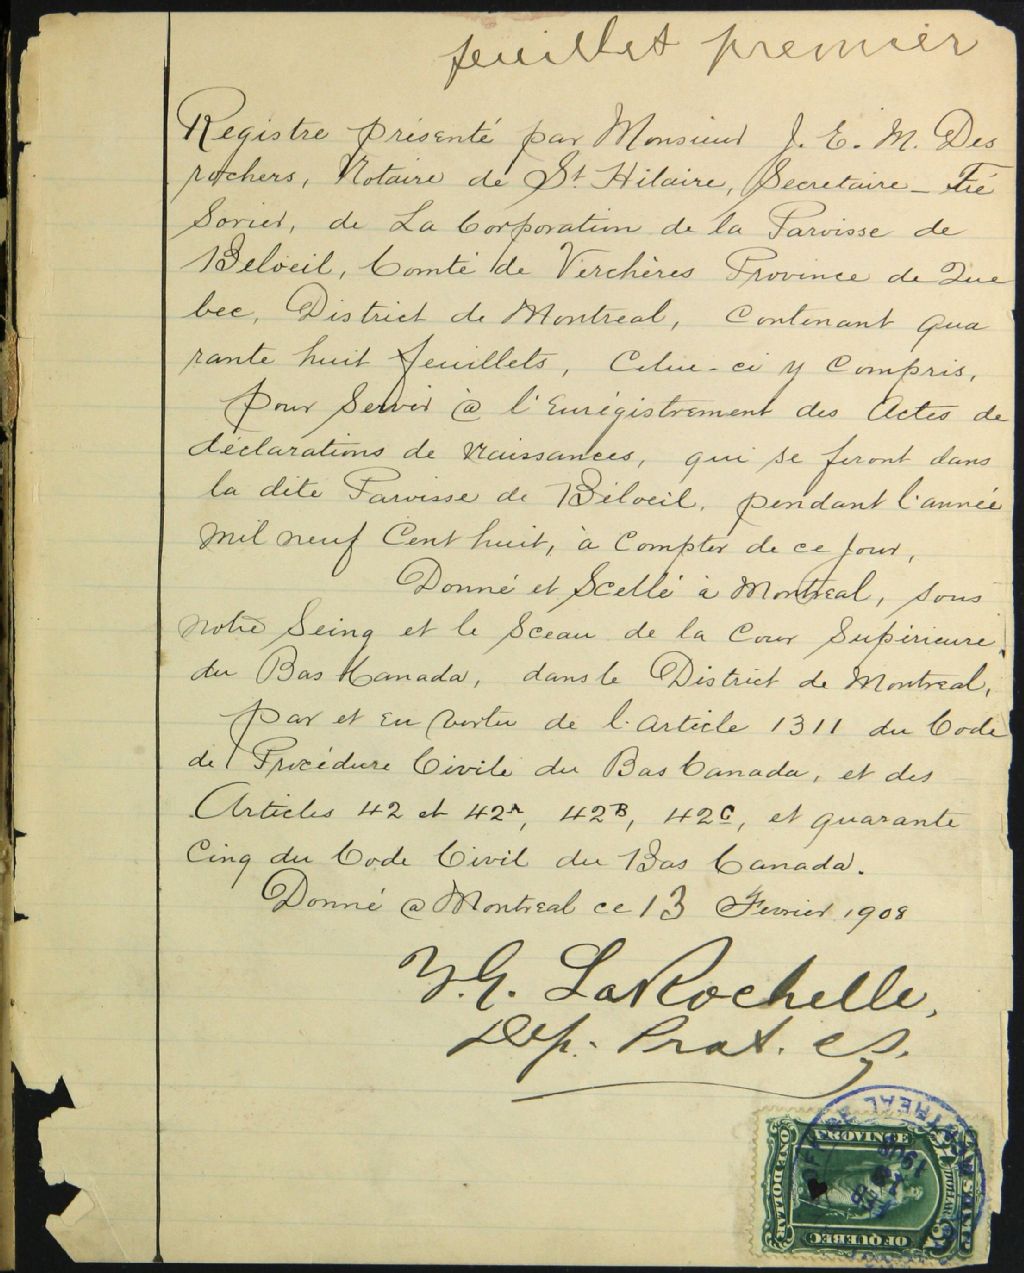 feuillet premier
Registre présenté par Monsieur J. E. M. Des
rochers, Notaire de St Hilaire, Secretaire - Tré
sorier, de La Corporation de la Paroisse de
Beloeil, Comté de Verchères Province de Que
bec, District de Montreal, contenant qua
rante huit feuillets, Celui-ci y Compris,
pour Servir @ l'Enrégistrement des Actes de
déclarations de naissances, qui se feront dans
la dite Paroisse de Béloeil, pendant l'année
mil neuf Cent huit, à Compter de ce Jour,
Donné et Scellé à Montreal, sous
notre Seing et le Sceau de la Cour Supérieure,
du Bas Canada, dans le District de Montreal,
par et en vertu de l'article 1311 du Code
de Procédure Civile du Bas Canada, et des
Articles 42 et 42A, 42B, 42C, et quarante
Cinq du Code Civil du Bas Canada.
Donné @ Montreal ce 13 Fevrier 1908
Y.G. LaRochelle,
Dep. Prot. C.S.
PROVINCE
OF QUEBEC
ONE DOLLAR
LAW STAMP
MONTREAL
1908